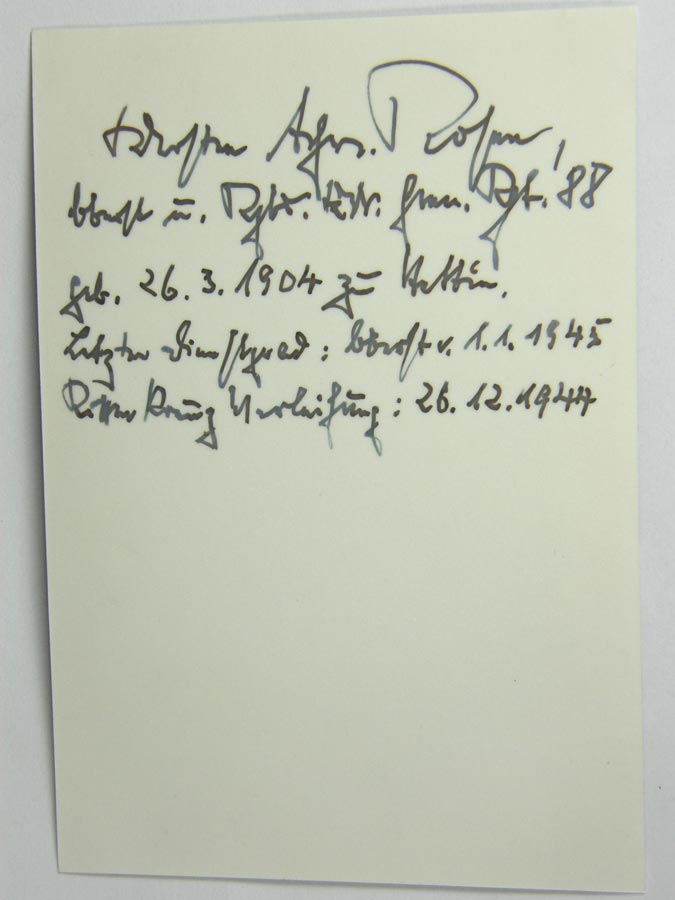 Oberst u. Rgts. Kdr. Gren. Rgt. 88
geb. 26.3.1904 zu Stettin.
Letzter Dienstgrad: Oberst v. 1.1.1945
Ritterkreuz Verleihung: 26.12.1944